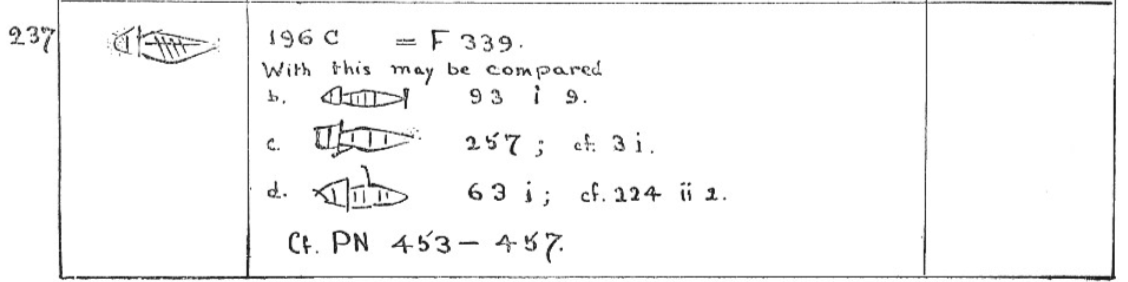 237 196 C = F 339.
With this may be compared
b. 93 i 9.
c. 257 ; cf. 3 i.
d. 63 i ; cf. 224 ii 2.
Cf. PN 453 – 457.